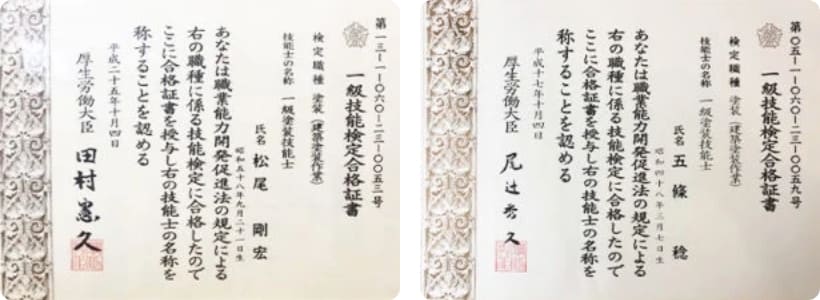 第一三-一-〇六〇-二三-〇〇五三号
一級技能検定合格証書
検定職種 塗装(建築塗装作業)
技能士の名称 一級塗装技能士
氏名 松尾 剛宏
昭和五十八年九月二十一日生
あなたは職業能力開発促進法の規定による
右の職種に係る技能検定に合格したので
ここに合格証書を授与し右の技能士の名称を
称することを認める
平成二十五年十月四日
厚生労働大臣 田村憲久
第〇五-一-〇六〇-二三-〇〇五九号
一級技能検定合格証書
検定職種 塗装(建築塗装作業)
技能士の名称 一級塗装技能士
氏名 五條 稔
昭和四十八年三月七日生
あなたは職業能力開発促進法の規定による
右の職種に係る技能検定に合格したので
ここに合格証書を授与し右の技能士の名称を
称することを認める
平成十七年十月四日
厚生労働大臣 尾辻秀久